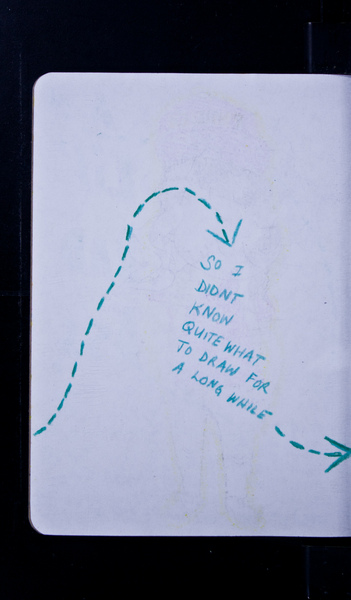 SO I
DIDNT
KNOW
QUITE WHAT
TO DRAW FOR
A LONG WHILE